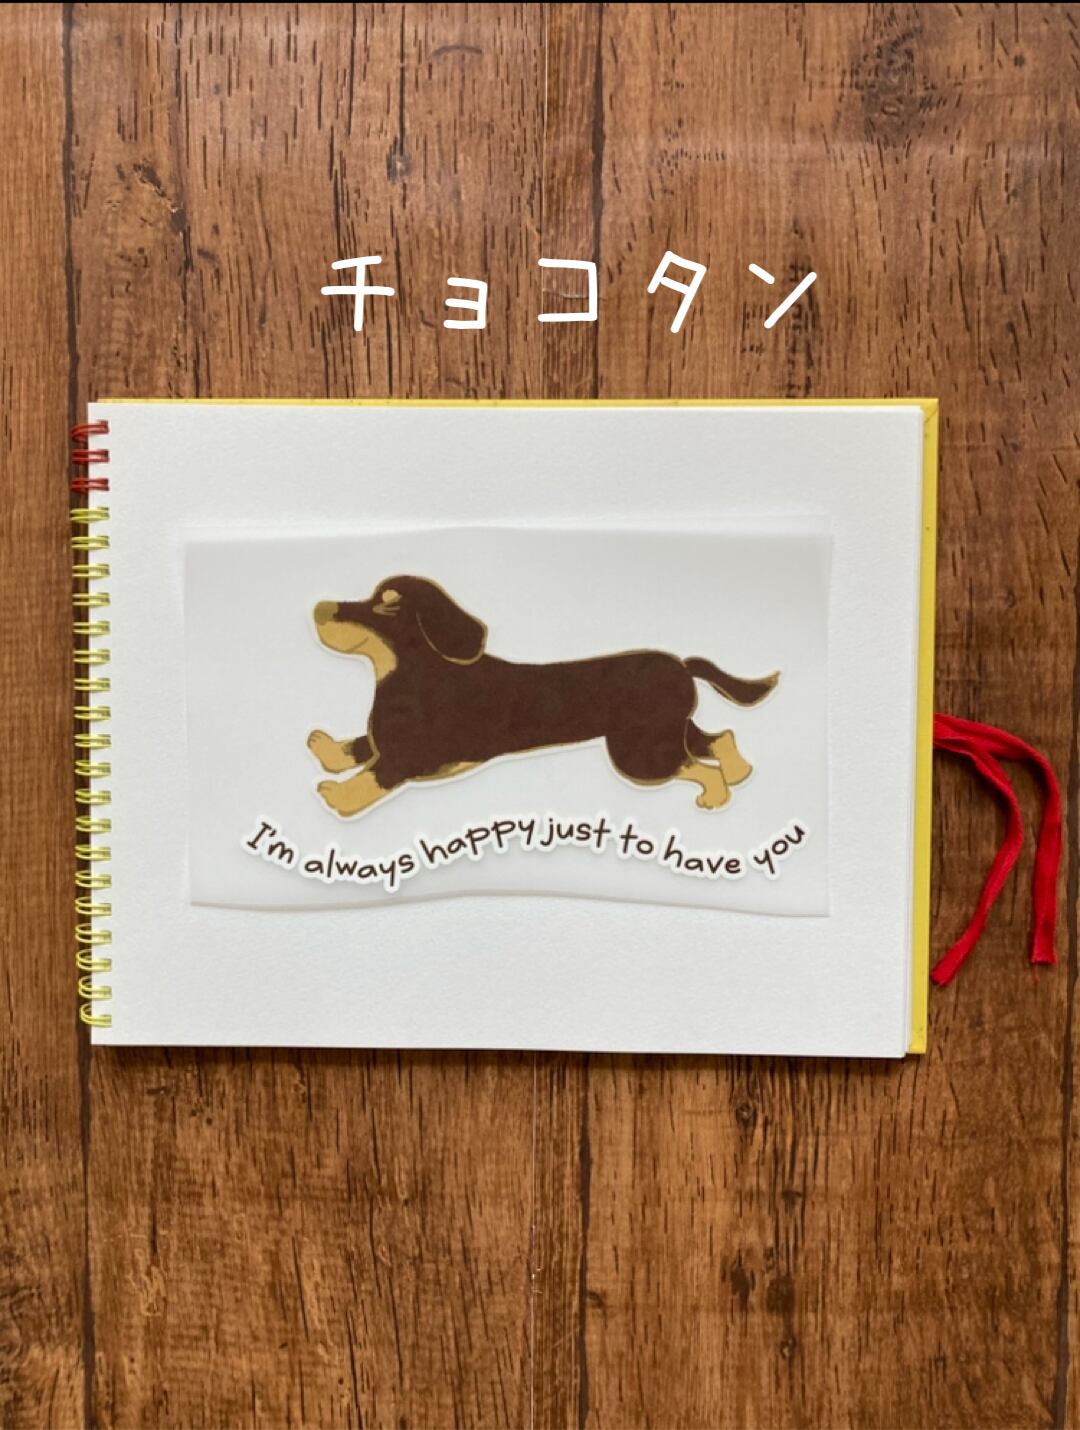 チョコタン
I'm always happy just to have you